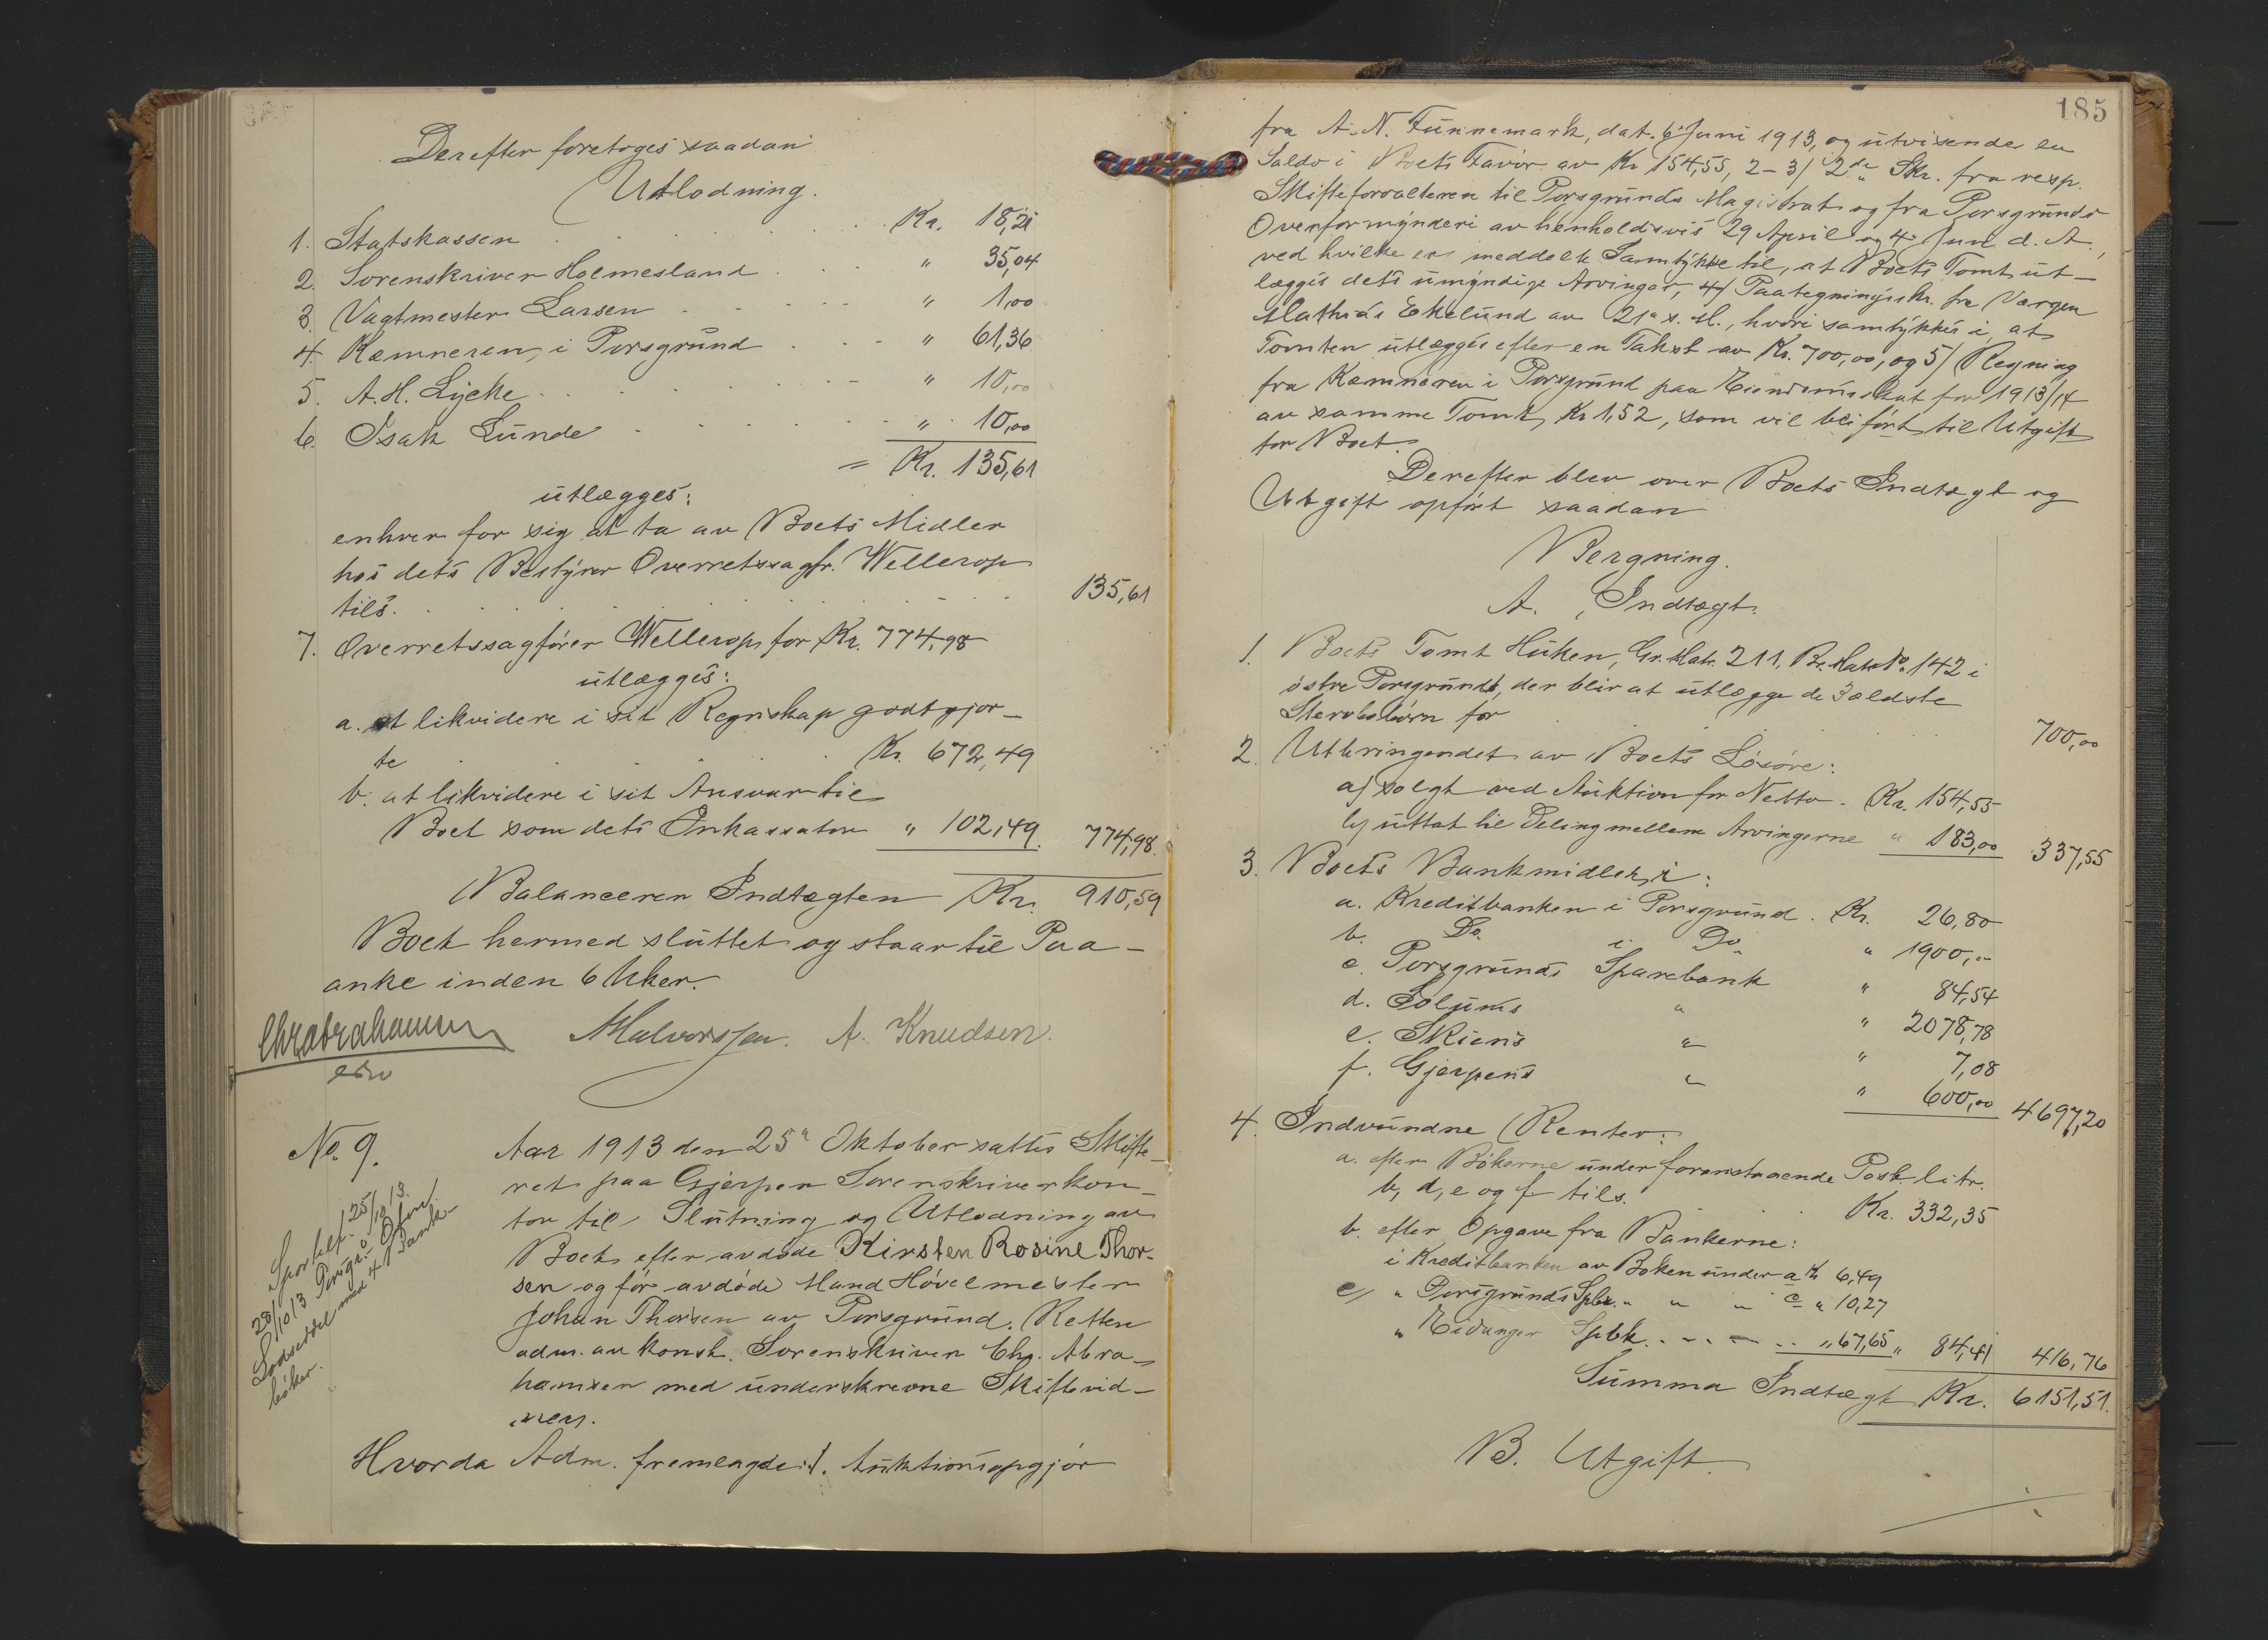 Derefter foretoges saadan
Utlodning.
1. Statskassen . . . . . . Kr. 18,21
2. Sorenskriver Holmesland . . . " 35,04
3. Vagtmester Larsen . . . " 1,00
4. Kæmneren i Porsgrund . . - " 61,36
5. A. H. Lycke . . . . . - " 10,00
6. Isak Lunde . . . . . - " 10,00
= Kr. 135,61
utlægges:
enhver for sig at ta av Boets Midler
hos dets Bestyrer Overretssagfr. Wellerop
tils. . . . . . . . . . 135,61
7. Overretssagfører Wellerop for Kr. 774,98
utlægges:
a. at likvidere i sit Regnskap godtgjor-
te . . . . . . Kr. 672,49
b. at likvidere i sit Ansvar til
Boet som dets Inkassator " 102,49. 774,98.
Balancerer Indtægten Kr. 910,59
Boet hermed sluttet og staar til Paa-
anke inden 6 Uker.
Chr Abrahamsen
AHalvorsen. A. Knudsen.
No. 9.
Sportlf. 25/10 13.
Lodseddel med 4 Bank-
bøker.
Aar 1913 den 25de Oktober sattes Skifte-
ret paa Gjerpen Sorenskriverkon-
tor til Slutning og Utlodning av
Boet efter avdøde Kirsten Rosine Thor-
sen og før avdøde Mand Høvelmester
Johan Thorsen av Porsgrund. Retten
adm. av konst. Sorenskriver Chr. Abra-
hamsen med underskrevne Skiftevid-
ner.
Hvorda Adm. fremlagde: 1. Auktionsopgjør
185
fra A. N. Funnemark, dat. 6te Juni 1913, og utvisende en
Saldo i Boets Favør av Kr 154,55, 2-3/ 2de Skr. fra resp.
Skifteforvalteren til Porsgrunds Magistrat og fra Porsgrunds
Overformynderi av henholdsvis 29 April og 4 Juni d. A.,
ved hvilke er meddelt Samtykke til, at Boets Tomt ut-
lægges dets umyndige Arvinger, 4/ Paategningsskr. fra Værgen
Mathias Ekelund av 21de s. M., hvori samtykkes i, at
Tomten utlægges efter en Takst av Kr. 700,00, og 5/ Regning
fra Kæmneren i Porsgrund paa Eiendomsskat for 1913/14
av samme Tomt, Kr 1,52, som vil bli ført til Utgift
for Boet.
Derefter blev over Boets Indtægt og
Utgift opført saadan
Beregning.
A. Indtægt.
1. Boets Tomt Huken, Gr. Matr. 211, Br. Matr. No. 142 i
østre Porsgrund, der blir at utlægge de 3 ældste
Stervbobørn for . . . . . 700,00
2. Utbringendet av Boets Løsøre:
a) solgt ved Auktion for Netto . Kr. 154,55
b) uttat til Deling mellem Arvingerne " 183,00 337,55
3. Boets Bankmidler, i:
a. Kreditbanken i Porsgrund . Kr. 26,80
b. Do. i Do. " 1900,-
c. Porsgrunds Sparebank " 84,54
d. Solums " " 2078,78
e. Skiens " " 7,08
f. Gjerpens " " 600,00 4697,20
4. Indvundne Renter:
a. efter Bøkerne under foranstaaende Post litr.
b, d, e og f tils. . . . Kr. 332,35
b. efter Opgave fra Bankerne:
i Kreditbanken av Boken under a Kr 6,49
" Porsgrunds Spbk. " " " c " 10,27
" Eidanger Spbk. . - - - . . " 67,65 " 84,41 416,76
Summa Indtægt Kr. 6151,51.
B. Utgift.